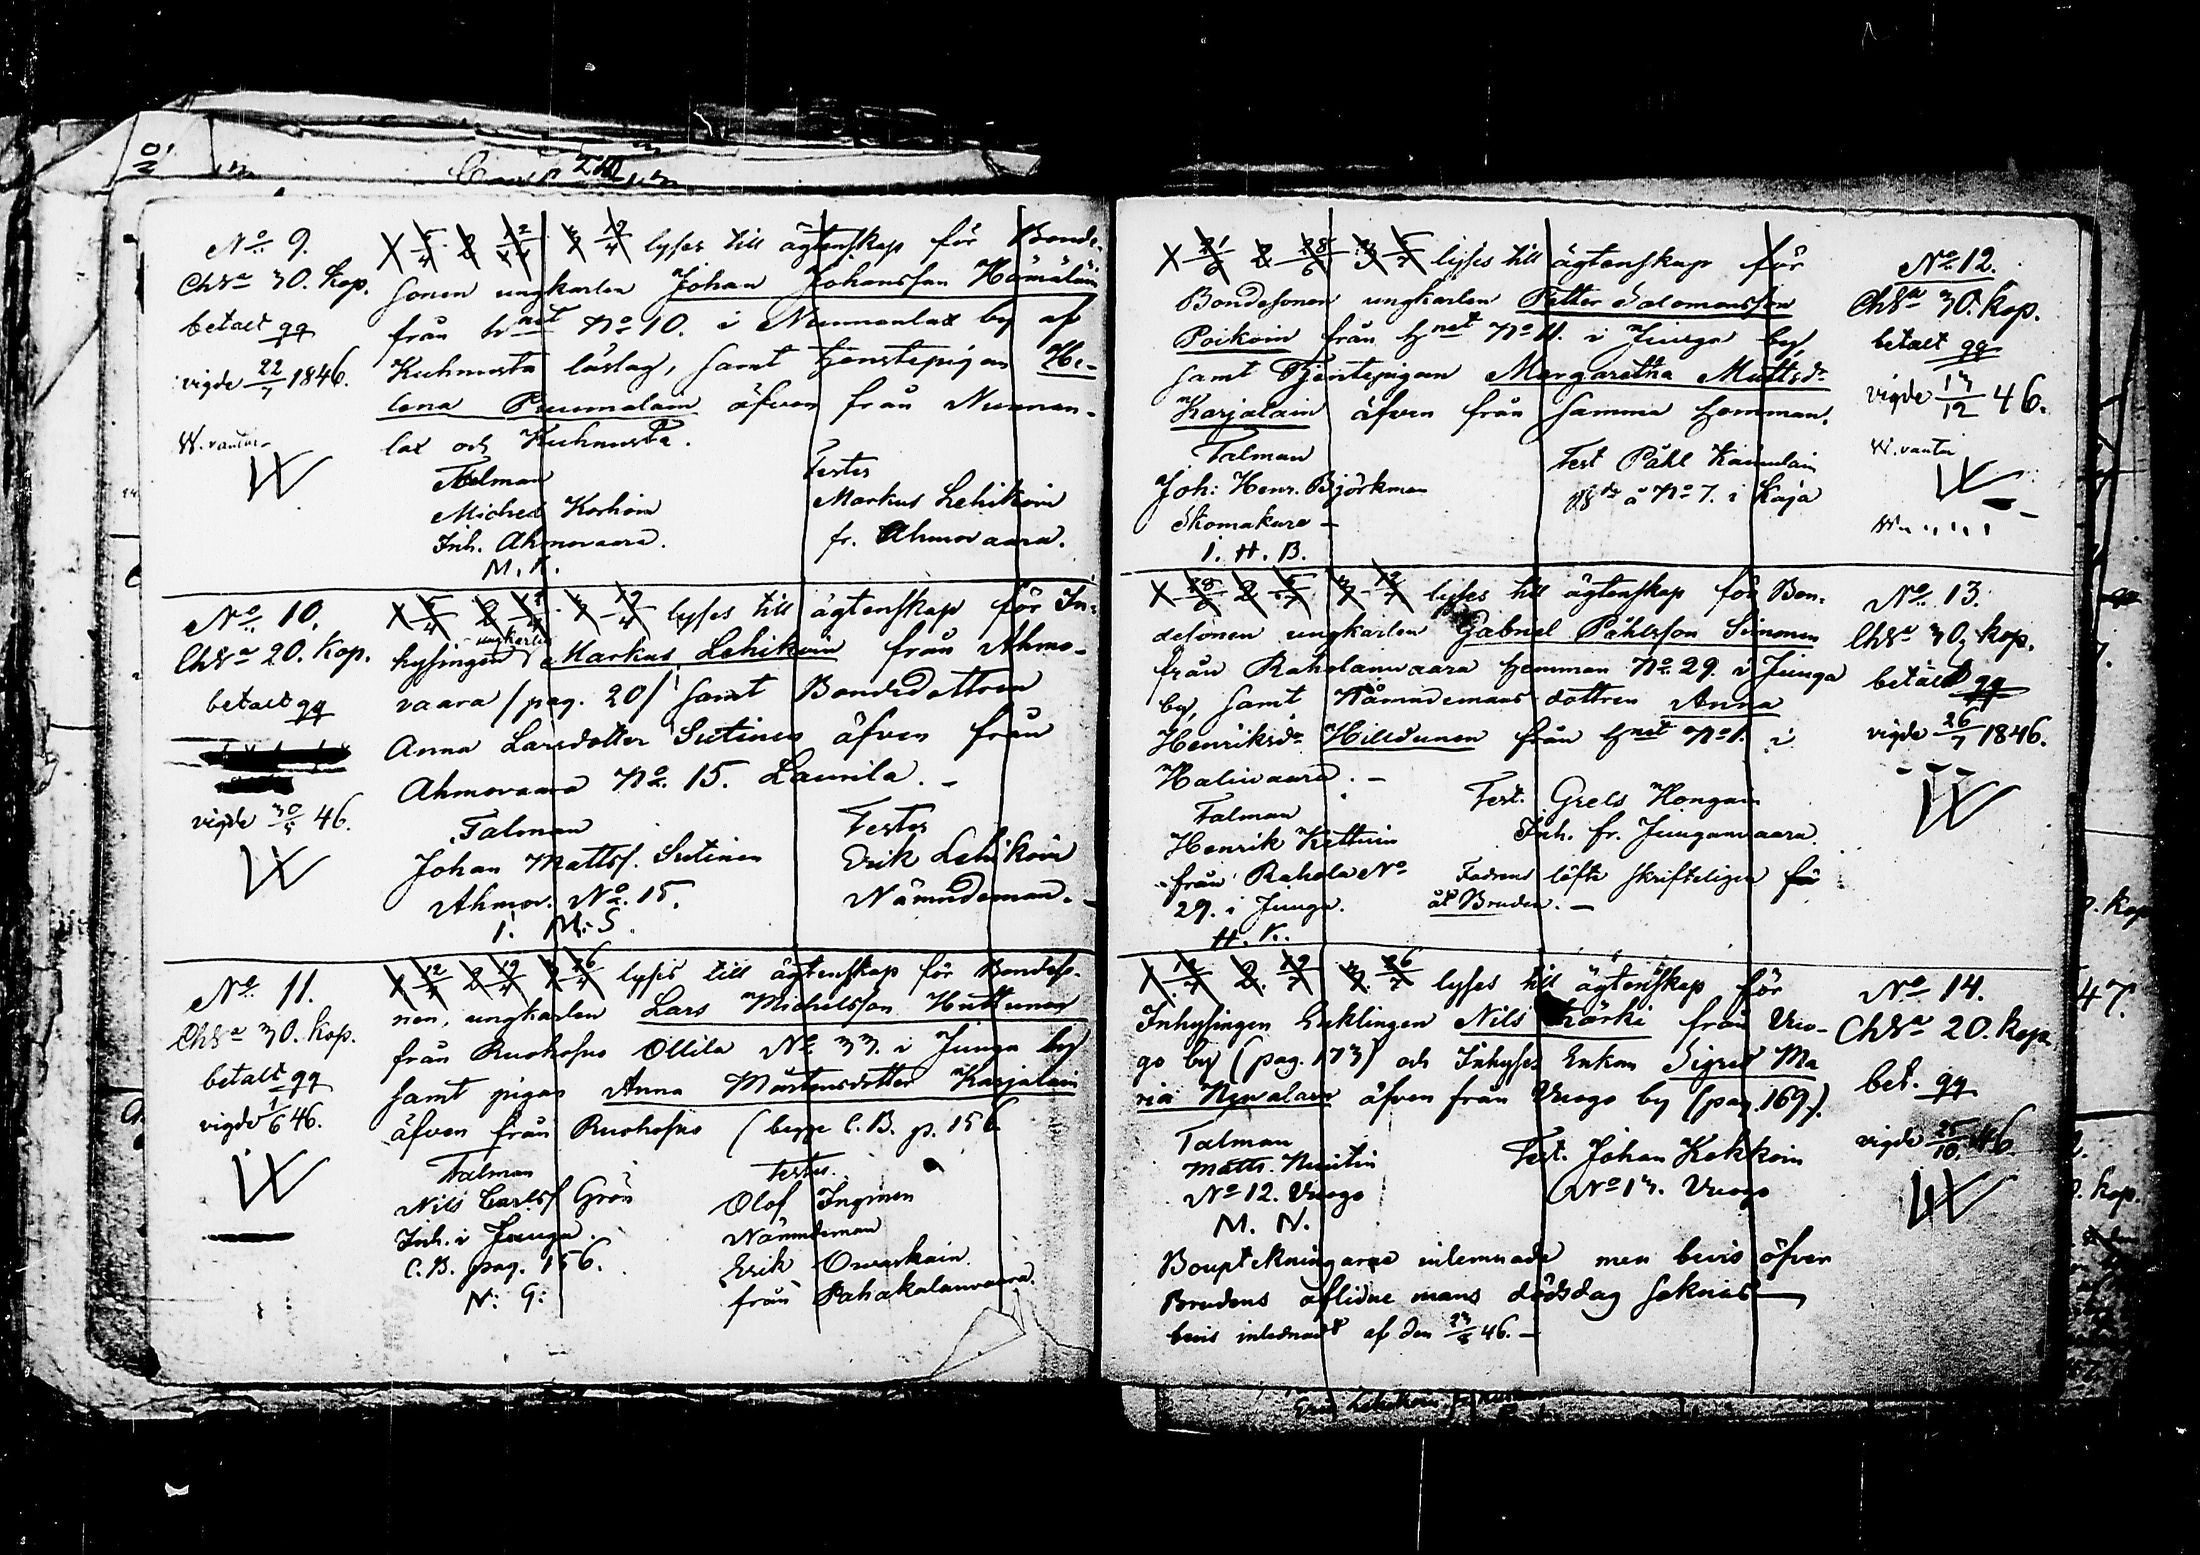 No 9.
Chta 30. kop.
betalt gg
vigde 22/7 1846.
W. vantar
X 5/4 2 12/4 3 19/4 lyses till ägtenskap för Bonde-
sonen ungkarlen Johan Johansson Hämäläin
från hnet No 10. i Nunnanlax by af
Kuhnusta låslag, samt tjenstepigan He-
lena Puumalain äfven från Nunnan-
lax och Kuhnusta.
Talman
Michel Korhoin
Inh. Ahmovaara.
M. K.
Testes
Markus Lehikoin
fr. Ahmovaara.
No 10.
Chta 20. kop.
betalt gg
vigde 30/5 46.
X 5/4 2 12/4 3 19/4 lyses till ägtenskap för In-
hysingen ungkarlen Markus Lehikoin från Ahmo-
vaara /pag. 20/ samt Bondedottren
Anna Larsdotter Sutinen äfven från
Ahmovaara No 15. Laurila. -
Talman
Johan Mattss. Sutinen
Ahmov. No 15.
I. M. S.
Testes
Erik Lehikoin
Nämndeman. -
No 11.
Chta 30. kop.
betalt gg
vigde 1/6 46.
X 12/4 2 19/4 3 26/4 lyses till ägtenskap för Bondeso-
nen, ungkarlen Lars Michelsson Huttunen
från Ruohosuo Ollila No 33. i Juuga by
samt pigan Anna Mårtensdotter Karjalain
äfven från Ruohosuo (begge C. B. p. 156
Talman
Nils Carlss Grön
Inh. i Juuga.
C. B. pag. 156.
N: G:
Testes.
Olof Ingman
Nämndeman
Erik Owaskain
från Pahakalanvaara.
No 12.
Chta 30. kop.
betalt gg
vigde 13/12 46.
W. vantar
X 21/6 2 28/6 3 5/7 lyses till ägtenskap för
Bondesonen ungkarlen Petter Salomonsson
Poikoin från hnet No 11. i Juuga by,
samt Tjenstepigan Margaretha Mattsdr
Karjalain äfven från samma hemman.
Talman
Joh: Henr. Björkman
Skomakare -
I. H. B.
Test Påhl Kainulain
å No 7. i Kaja
No 13.
Chta 30 kop.
betalt gg
vigde 26/7 1846.
X 28/6 2 5/7 3 12/7 lyses till ägtenskap för Bon-
desonen ungkarlen Gabriel Påhlsson Simonen
från Raholanvaara hemman No 29. i Juuga
by, samt Nämndemans dottren Anna
Henriksdr Hilldunen från hnet No 1. i
Halivaara. -
Talman
Henrik Kettuin
från Rahola No
29. i Juuga.
H. K.
Test. Grels Hongain
Inh. fr. Juuganvaara.
Fadrens löfte skrifteligen för
åt Bruden. -
No 14.
Chta 20. kop
bet. gg
vigde 25/10 46
X 12/7 2. 19/7 3. 26/7 lyses till ägtenskap för
Inhysingen Enklingen NilsTrärki från Vuo-
go by (pag. 173) och Inhyses Enkan Sigred Ma
ria Newalain äfven från Vuogo by (pag. 169).
Talman
Matts. Nuutin
No 12. Vuogo
M. N.
Test. Johan Kokkoin
No 13. Vuogo
Bouptekningarne inlemnade men bevis öfver
Brudens aflidne mans dödsdag saknas
bevis inlednadt af den 23/8 46. -